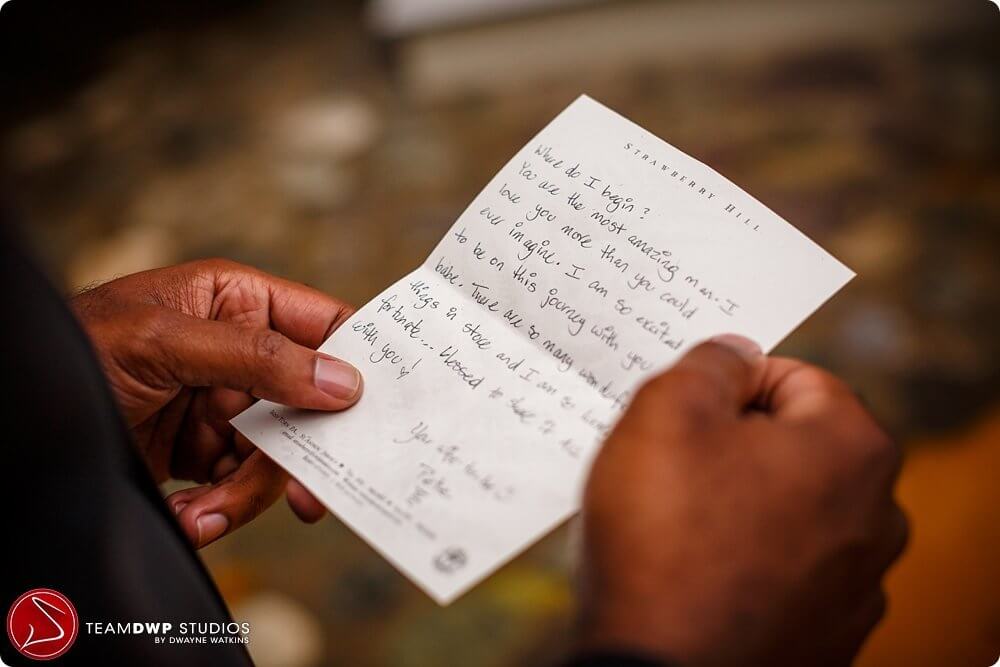 STRAWBERRY HILL
Where do I begin?
You are the most amazing man. I
love you more than you could
ever imagine. I am so excited
to be on this journey with you
babe. There are so many
things in store and I am so
fortunate... blessed to share it
with you!
TEAMDWP STUDIOS
BY DWAYNE WATKINS